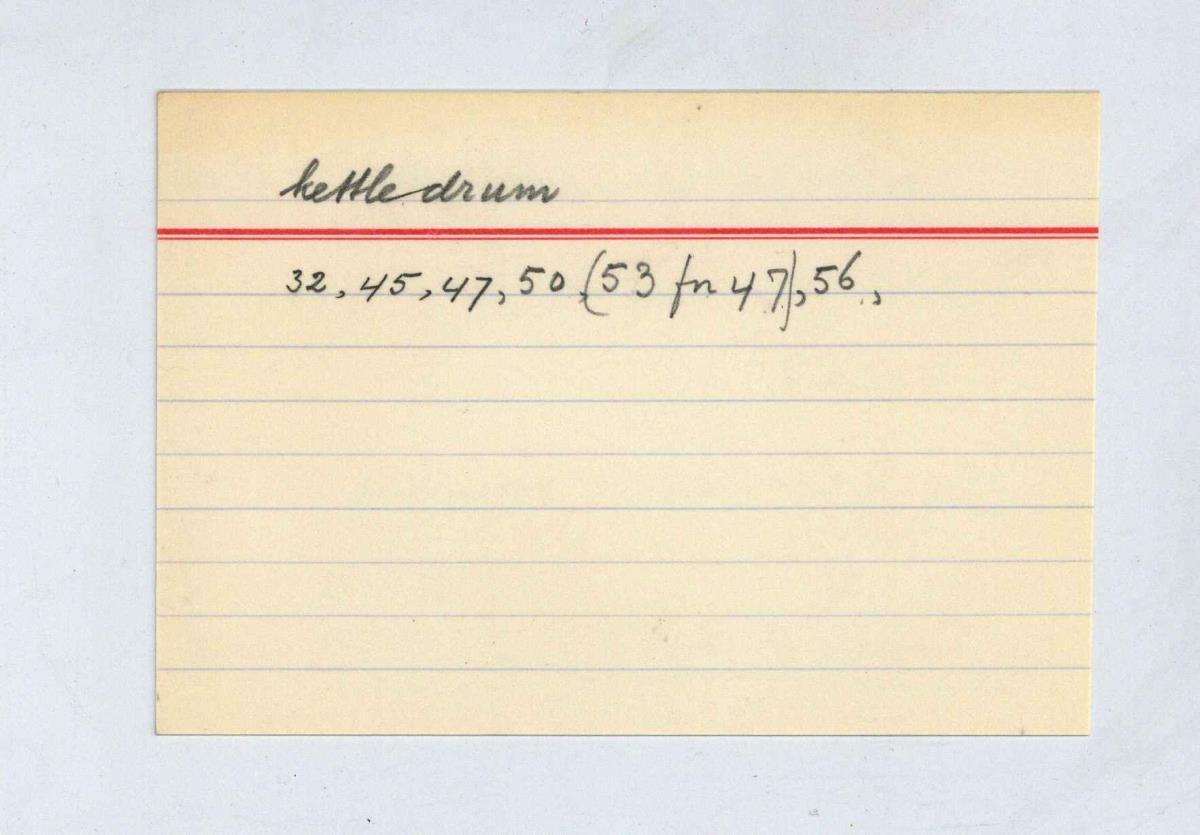 kettledrum
32, 45, 47, 50 (53 fn 47), 56,